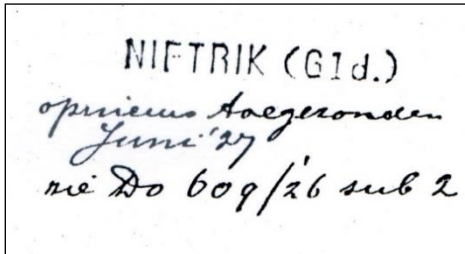 NIFTRIK (Gld.)
opnieuw toegezonden
Juni '27
zie Do 609/26 sub 2